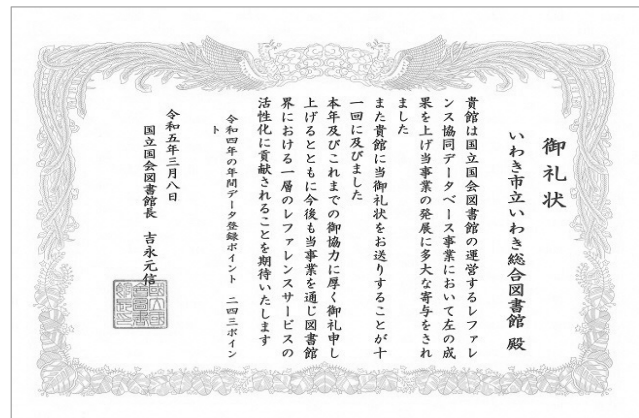 御礼状
いわき市立いわき総合図書館 殿
貴館は国立国会図書館の運営するレファレ
ンス協同データベース事業において左の成
果を上げ当事業の発展に多大な寄与をされ
ました
また貴館に当御礼状をお送りすることが十
一回に及びました
本年及びこれまでの御協力に厚く御礼申し
上げるとともに今後も当事業を通じ図書館
界における一層のレファレンスサービスの
活性化に貢献されることを期待いたします
令和四年の年間データ登録ポイント 二四三ポイン
ト
令和五年三月八日
国立国会図書館長 吉永元信